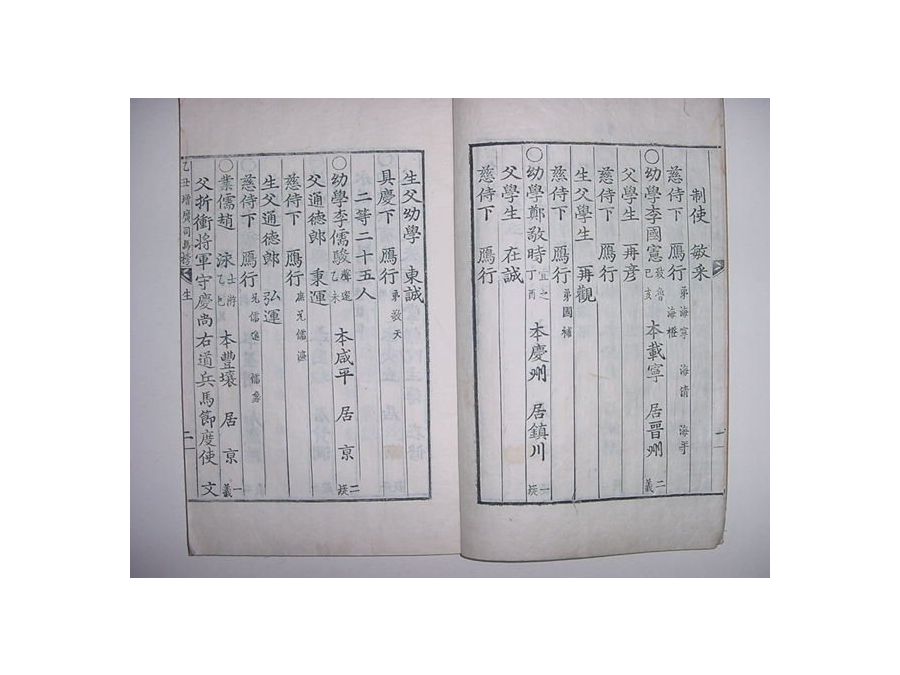 制使 敏采
慈侍下 鴈行 弟海寧 海清 海平 海橙
〇幼學李國憲 敬魯 己亥 本載寧 居晋州 二義
父學生 再彦
慈侍下 鴈行
生父學生 再觀
慈侍下 鴈行 弟國補
〇幼學鄭敬時 宜之 丁酉 本慶州 居鎮川 一
父學生 在誠
慈侍下 鴈行
生父幼學 東誠
具慶下 鴈行 弟敬天
二等二十五人
〇幼學李儒駿 乙未 本咸平 居京 二
父通德郎 秉運
慈侍下 鴈行 兄儒
生父通德郎 弘運
慈侍下 鴈行 兄儒 儒
〇業儒趙 洙 士 乙 本豊壤 居京 一義
父折衝將軍守慶尚右道兵馬節度使 文
乙丑增廣司馬榜 生 二